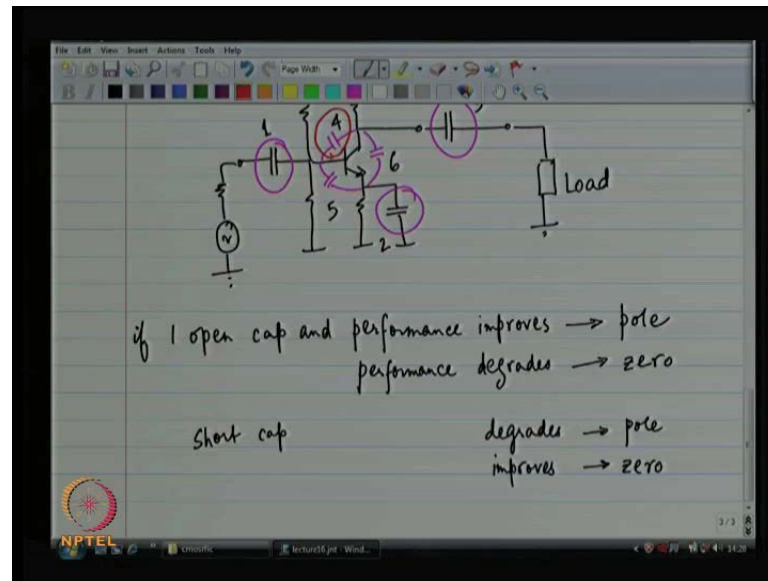 File Edit View Insert Actions Tools Help
Page Width
B I
1
4
5
6
2
Load
if I open cap and performance improves → pole
performance degrades → zero
Short cap degrades → pole
improves → zero
3/3
NPTEL
cmosrfic
lecture16.jnt - Wind...
14:28